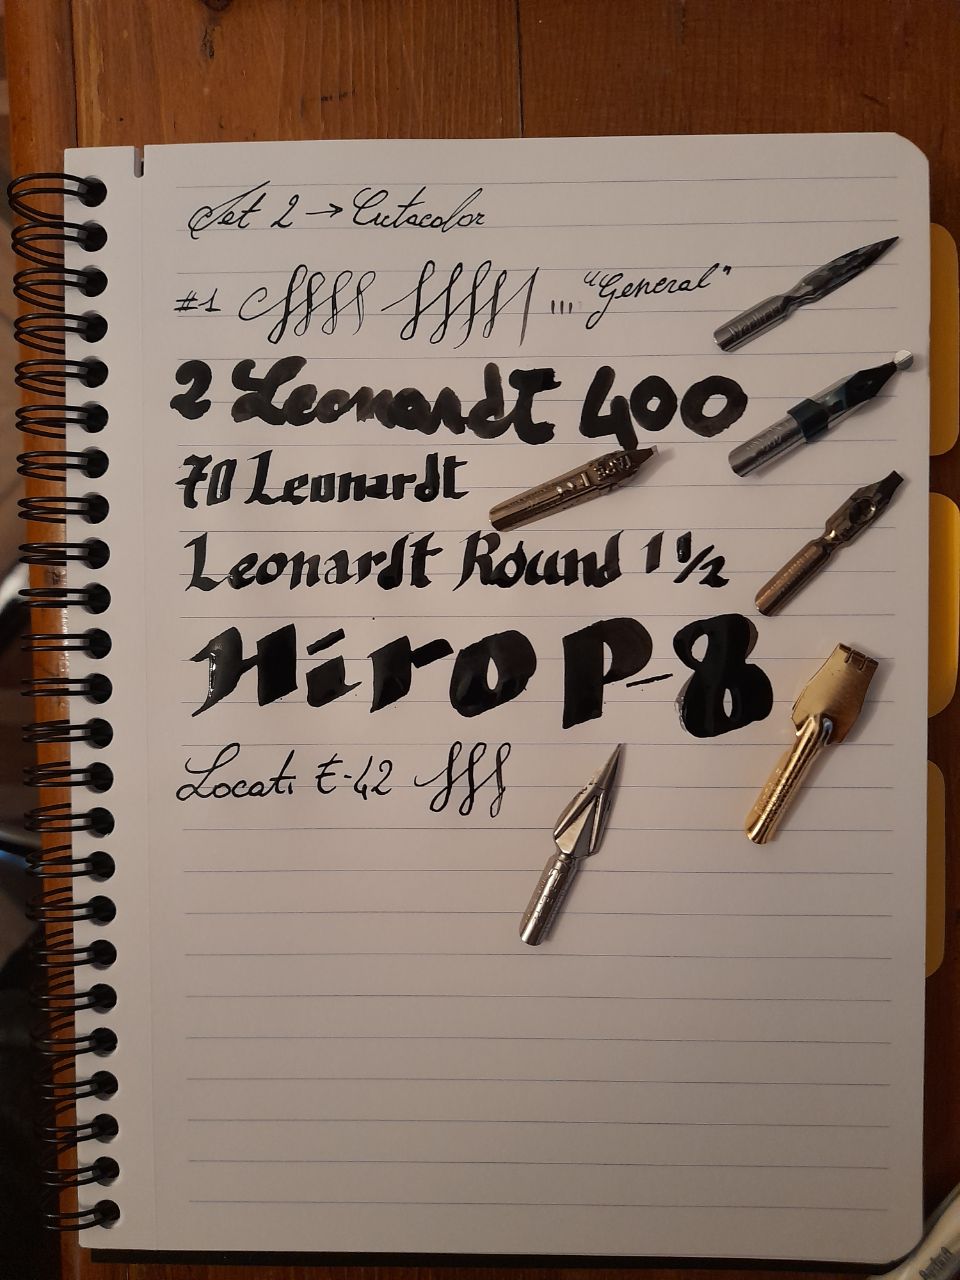 Set 2 → Cutacolor
#1 "General"
2 Leonardt 400
70 Leonardt
Leonardt Round 1 1/2
Hiro P-8
Locati E-42